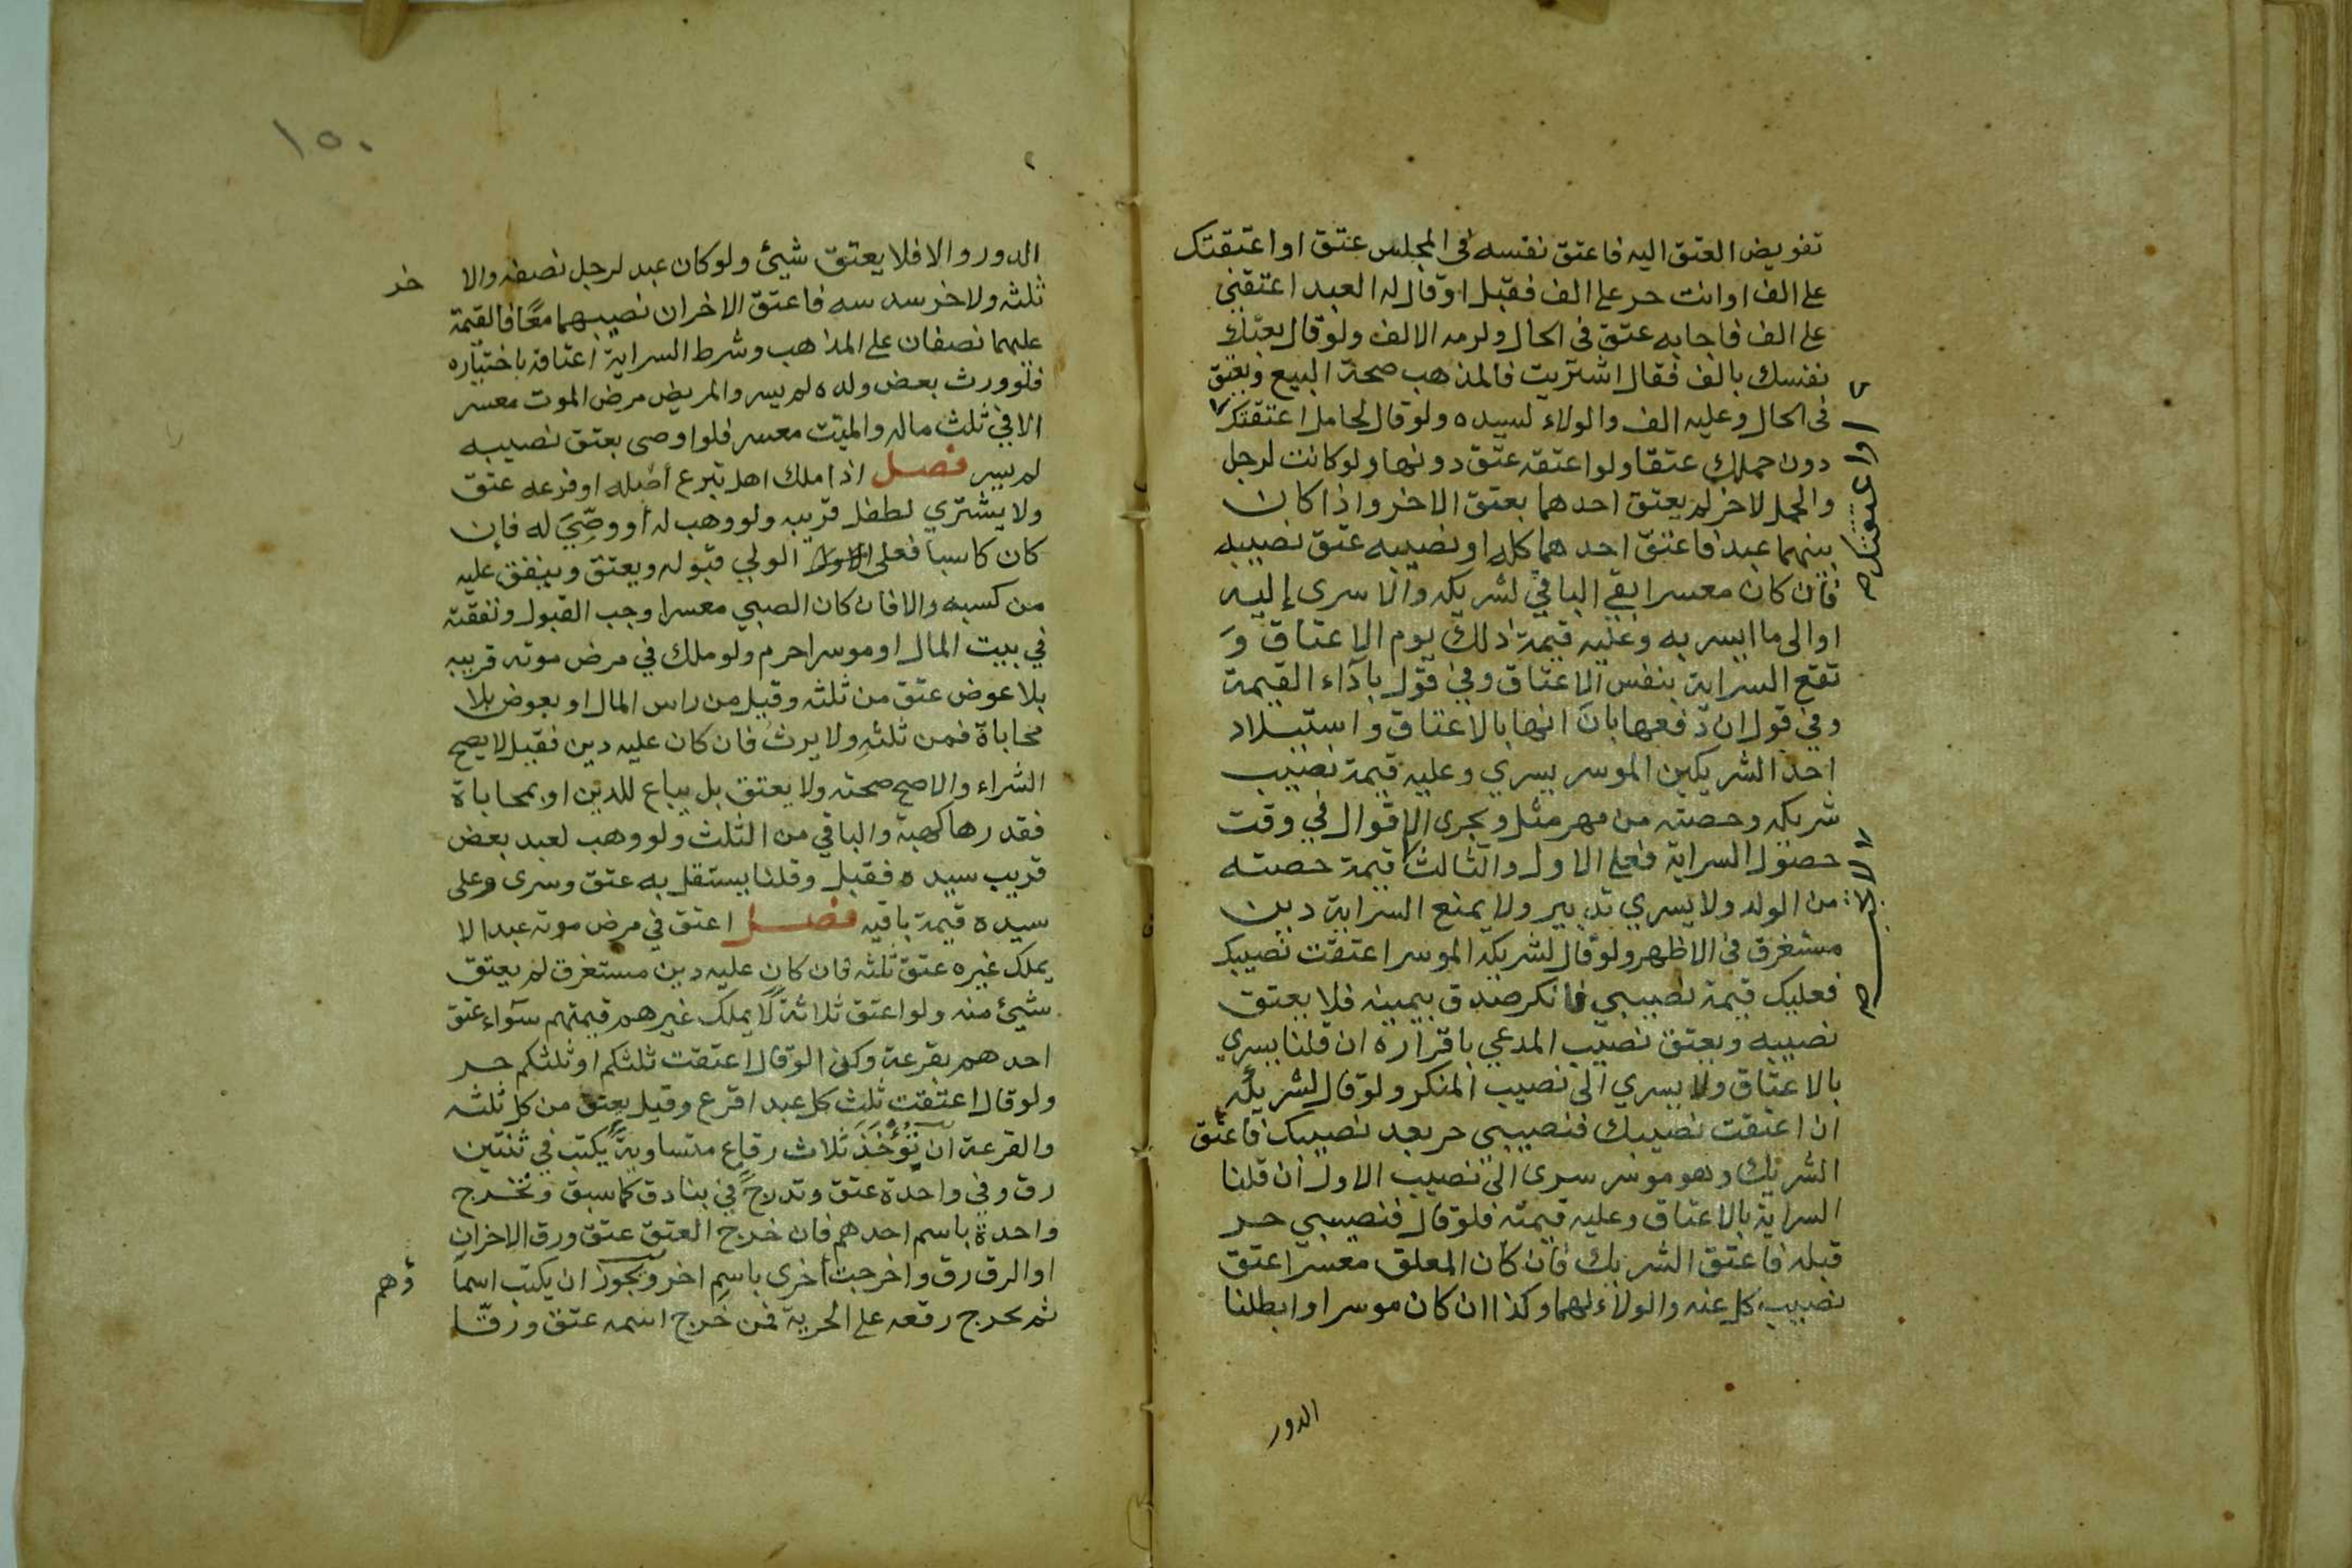 تفويض العتق اليه فاعتق نفسه في المجلس عتق او اعتقتك
على الف او انت حر على الف فقبل او قال له العبد اعتقني
على الف فاجابه عتق في الحال ولزمه الالف ولو قال بعتك
نفسك بالف فقال اشتريت فالمذهب صحة البيع ويعتق
في الحال وعليه الف والولاء لسيده ولو قال لحامل اعتقتك
دون حملك عتقا ولو اعتقه عتق دونها ولو كانت لرجل
والحمل لاخر لم يعتق احدهما بعتق الاخر واذا كان
بينهما عبد فاعتق احدهما كله او نصيبه عتق نصيبه
فان كان معسرا بقي الباقي لشريكه والا سرى إليه
او الى ما ايسر به وعليه قيمة ذلك يوم الاعتاق وَ
تقع السراية بنفس الاعتاق وفي قول باداء القيمة
وفي قول ان دفعها بان انها بالاعتاق واستيلاد
احد الشريكين الموسر يسري وعليه قيمة نصيب
شريكه وحصته من مهر مثل ويجري الاقوال في وقت
حصول السراية فعلى الاول والثالث قيمة حصته
من الولد ولا يسري تدبير ولا يمنع السراية دين
مستغرق في الاظهر ولو قال لشريكه الموسر اعتقت نصيبك
فعليك قيمة نصيبي فانكر صدق بيمينه فلا يعتق
نصيبه ويعتق نصيب المدعي باقراره ان قلنا يسري
بالاعتاق ولا يسري الى نصيب المنكر ولو قال لشريكه
ان اعتقت نصيبك فنصيبي حر بعد نصيبك فاعتق
الشريك وهو موسر سرى الى نصيب الاول ان قلنا
السراية بالاعتاق وعليه قيمته فلو قال فنصيبي حر
قبله فاعتق الشريك فان كان المعلق معسرا عتق
نصيب كل عنه والولاء لهما وكذا ان كان موسرا وابطلنا
الدور
١٥٠
الدور والا فلا يعتق شيئ ولو كان عبد لرجل نصفه والا خر
ثلثه ولاخر سدسه فاعتق الاخران نصيبهما معًا فالقيمة
عليهما نصفان على المذاهب وشرط السراية اعتاقه باختياره
فلو ورث بعض ولده لم يسر والمريض مرض الموت معسر
الا في ثلث ماله والميت معسر فلو اوصى بعتق نصيبه
لم يسر فصل اذا ملك اهل تبرع أصله او فرعه عتق
ولا يشتري لطفل قريبه ولو وهب له أو وصّيَ له فإن
كان كاسبا فعلى الولي قبوله ويعتق وينفق عليه
من كسبه والا فان كان الصبي معسرا وجب القبول ونفقته
في بيت المال او موسرا حرم ولو ملك في مرض موته قريبه
بلا عوض عتق من ثلثه وقيل من راس المال او بعوض بلا
محاباة فمن ثلثهِ ولا يرث فان كان عليه دين فقيل لا يصح
الشراء والاصح صحته ولا يعتق بل يباع للدين او بمحاباة
فقدرها كهبة والباقي من الثلث ولو وهب لعبد بعض
قريب سيده فقبل وقلنا يستقل به عتق وسرى وعلى
سيده قيمة باقيه فصل اعتق في مرض موته عبدا لا
يملك غيره عتق ثلثه فان كان عليه دين مستغرق لم يعتق
شيئ منه ولو اعتق ثلاثة لا يملك غيرهم قيمتهم سواء عتق
احدهم بقرعة وكذا لو قال اعتقت ثلثكم او ثلثكم حر
ولو قال اعتقت ثلث كل عبد اقرع وقيل يعتق من كل ثلثه
والقرعة ان تؤخذ ثلاث رقاع متساوية يكتب في ثنتين
رق وفي واحدة عتق وتدرج في بنادق كما سبق وتخرج
واحدة باسم احدهم فان خرج العتق عتق ورق الاخران
او الرق رق واخرجت أخرى باسم اخر ويجوز ان يكتب اسما ؤهم
ثم تخرج رقعه على الحرية فمن خرج اسمه عتق ورقّا